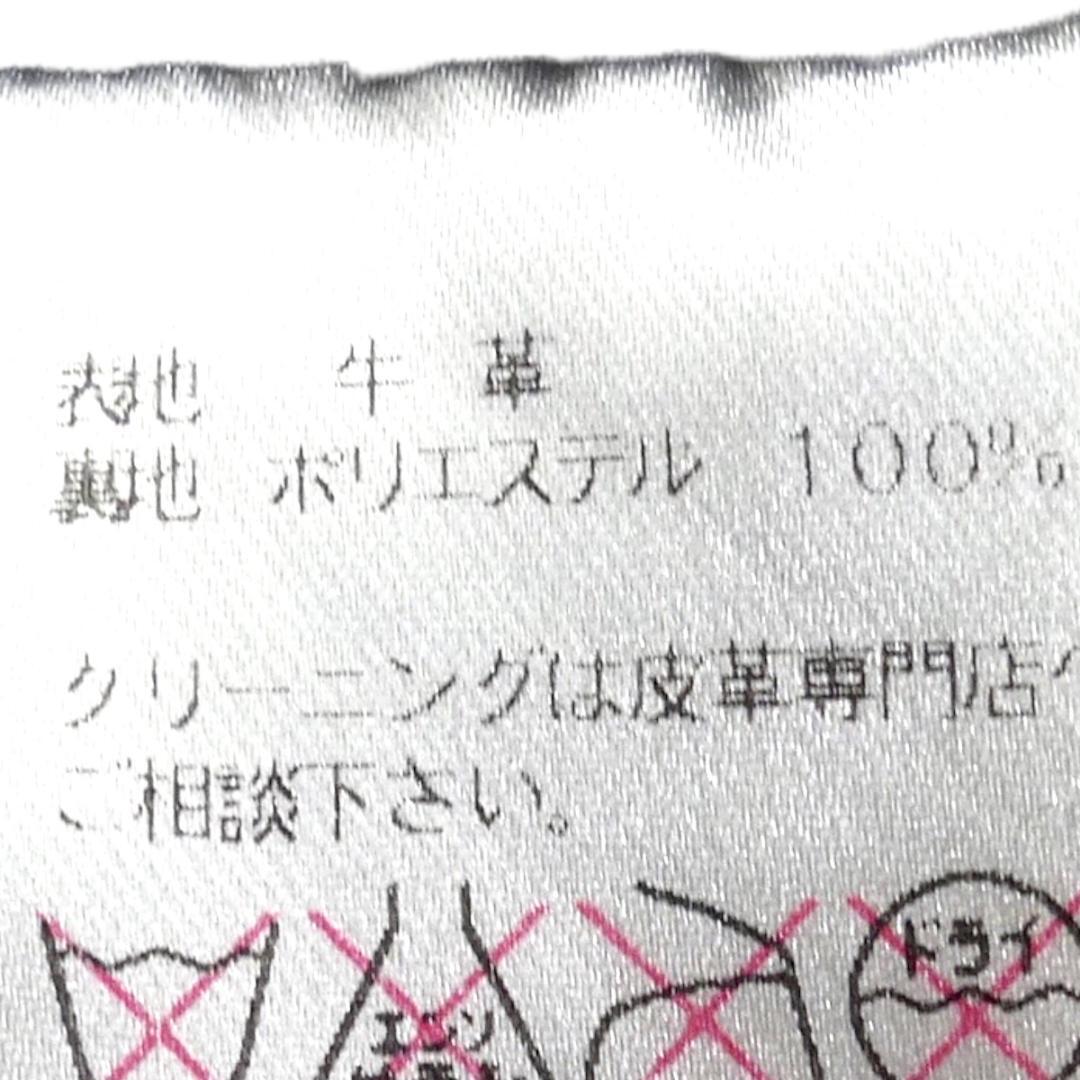 表地 牛革
裏地 ポリエステル 100%
クリーニングは皮革専門店
ご相談下さい。
エンソ
ドライ